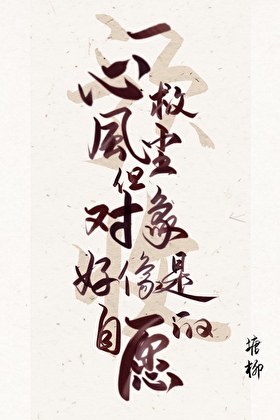 一心救
風尘
但
对象
好像是
自愿的
塘柳